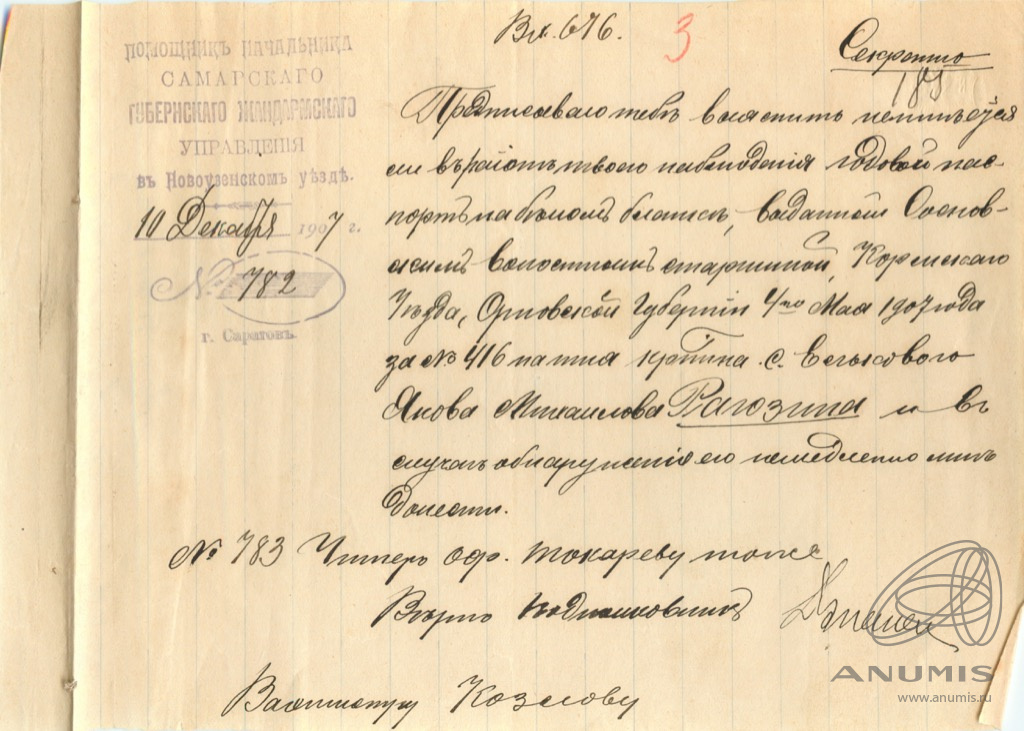 Вх. 676.
3
Секретно
185
ПОМОЩНИКЪ НАЧАЛЬНИКА
САМАРСКАГО
ГУБЕРНСКАГО ЖАНДАРМСКАГО
УПРАВЛЕНІЯ
въ Новоузенскомъ уѣздѣ.
10 Декабря 1907 г.
№ 782
г. Саратовъ.
Предписываю тебѣ выяснить неимѣется
ли въ районѣ твоего наблюденія годовой пас-
портъ на бѣломъ бланкѣ, выданный Соснов-
скимъ волостнымъ старшиной, Кормскаго
Уѣзда, Орловской Губерніи 4го Мая 1907 года
за № 416 на имя кр-тина с.
Якова Михайлова Рагозина и въ
случаѣ обнаруженія его немедленно мнѣ
донести.
№ 783 Унтеръ Оф. Токареву тоже
Вѣрно Подполковникъ
Вахмистру Козлову
ANUMIS
www.anumis.ru